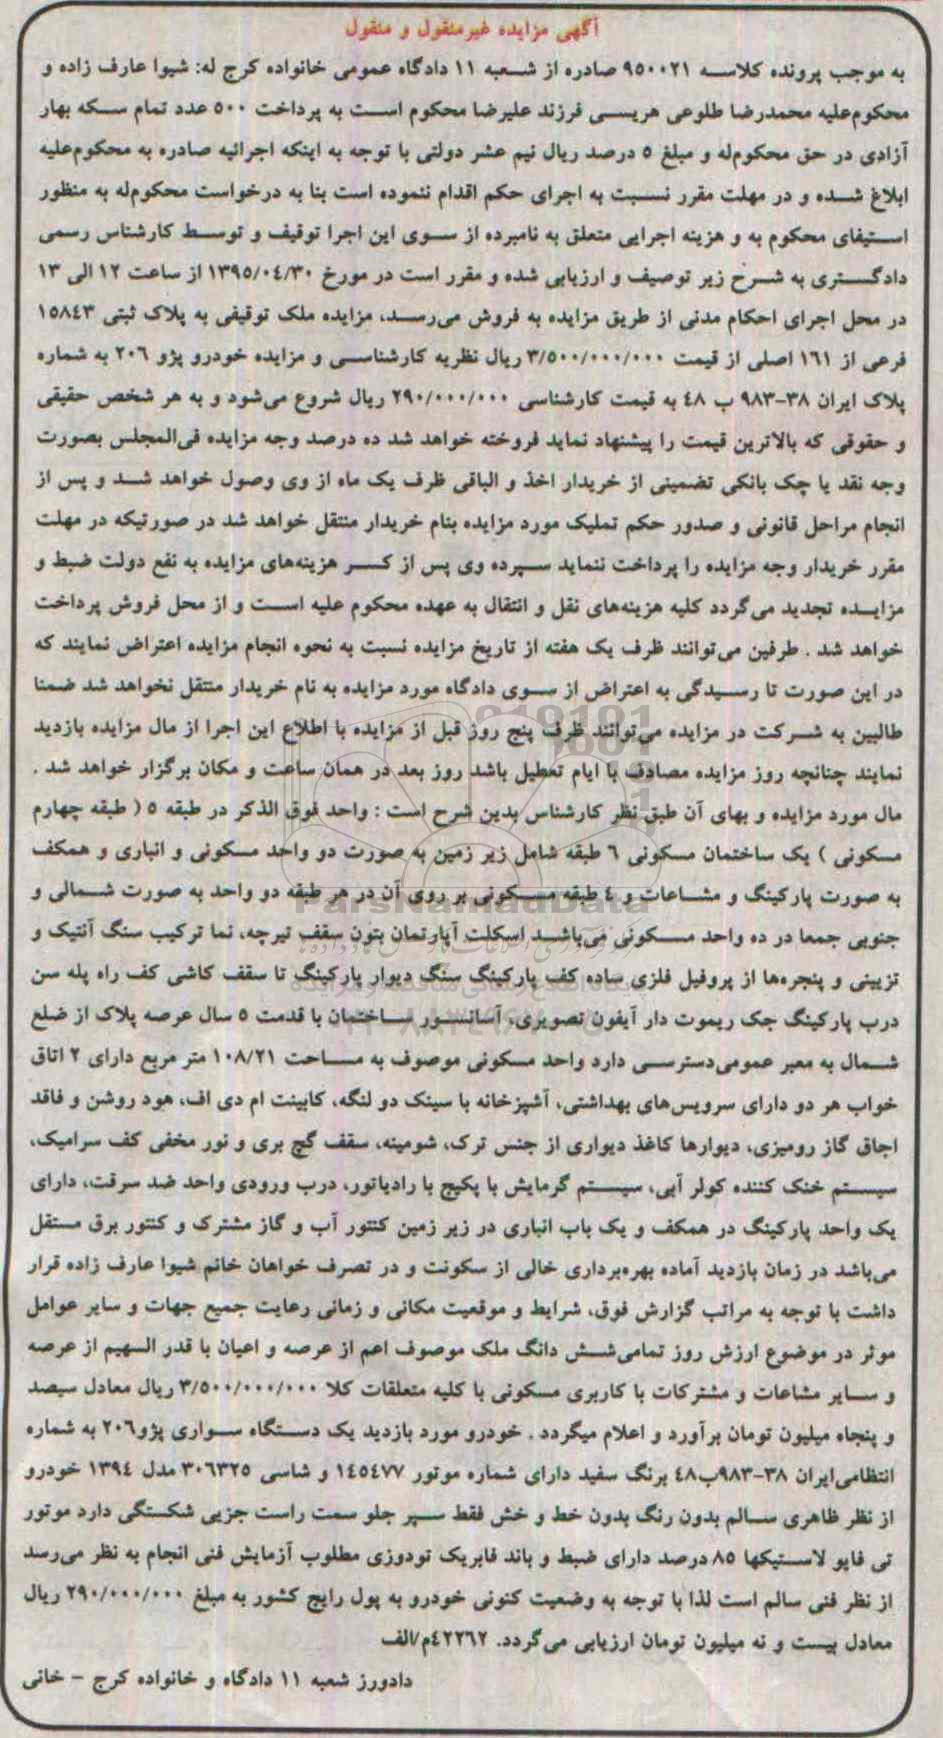 آگهی مزایده غیرمنقول و منقول
به موجب پرونده کلاسه ۹۵۰۰۲۱ صادره از شعبه ۱۱ دادگاه عمومی خانواده کرج له: شیوا عارف زاده و
محکوم‌علیه محمدرضا طلوعی هریسی فرزند علیرضا محکوم است به پرداخت ۵۰۰ عدد تمام سکه بهار
آزادی در حق محکوم‌له و مبلغ ۵ درصد ریال نیم عشر دولتی با توجه به اینکه اجرائیه صادره به محکوم‌علیه
ابلاغ شده و در مهلت مقرر نسبت به اجرای حکم اقدام ننموده است بنا به درخواست محکوم‌له به منظور
استیفای محکوم به و هزینه اجرایی متعلق به نامبرده از سوی این اجرا توقیف و توسط کارشناس رسمی
دادگستری به شرح زیر توصیف و ارزیابی شده و مقرر است در مورخ ۱۳۹۵/۰۴/۳۰ از ساعت ۱۲ الی ۱۳
در محل اجرای احکام مدنی از طریق مزایده به فروش می‌رسد، مزایده ملک توقیفی به پلاک ثبتی ۱۵۸۴۳
فرعی از ۱۶۱ اصلی از قیمت ۳/۵۰۰/۰۰۰/۰۰۰ ریال نظریه کارشناسی و مزایده خودرو پژو ۲۰۶ به شماره
پلاک ایران ۳۸-۹۸۳ ب ۴۸ به قیمت کارشناسی ۲۹۰/۰۰۰/۰۰۰ ریال شروع می‌شود و به هر شخص حقیقی
و حقوقی که بالاترین قیمت را پیشنهاد نماید فروخته خواهد شد ده درصد وجه مزایده فی‌المجلس بصورت
وجه نقد یا چک بانکی تضمینی از خریدار اخذ و الباقی ظرف یک ماه از وی وصول خواهد شد و پس از
انجام مراحل قانونی و صدور حکم تملیک مورد مزایده بنام خریدار منتقل خواهد شد در صورتیکه در مهلت
مقرر خریدار وجه مزایده را پرداخت ننماید سپرده وی پس از کسر هزینه‌های مزایده به نفع دولت ضبط و
مزایده تجدید می‌گردد کلیه هزینه‌های نقل و انتقال به عهده محکوم علیه است و از محل فروش پرداخت
خواهد شد . طرفین می‌توانند ظرف یک هفته از تاریخ مزایده نسبت به نحوه انجام مزایده اعتراض نمایند که
در این صورت تا رسیدگی به اعتراض از سوی دادگاه مورد مزایده به نام خریدار منتقل نخواهد شد ضمنا
طالبین به شرکت در مزایده می‌توانند ظرف پنج روز قبل از مزایده با اطلاع این اجرا از مال مزایده بازدید
نمایند چنانچه روز مزایده مصادف با ایام تعطیل باشد روز بعد در همان ساعت و مکان برگزار خواهد شد .
مال مورد مزایده و بهای آن طبق نظر کارشناس بدین شرح است : واحد فوق الذکر در طبقه ۵ ( طبقه چهارم
مسکونی ) یک ساختمان مسکونی ۶ طبقه شامل زیر زمین به صورت دو واحد مسکونی و انباری و همکف
به صورت پارکینگ و مشاعات و ٤ طبقه مسکونی بر روی آن در هر طبقه دو واحد به صورت شمالی و
جنوبی جمعا در ده واحد مسکونی می‌باشد اسکلت آپارتمان بتون سقف تیرچه، نما ترکیب سنگ آنتیک و
تزیینی و پنجره‌ها از پروفیل فلزی ساده کف پارکینگ سنگ دیوار پارکینگ تا سقف کاشی کف راه پله سن
درب پارکینگ جک ریموت دار آیفون تصویری، آسانسور ساختمان با قدمت ۵ سال عرصه پلاک از ضلع
شمال به معبر عمومی‌دسترسی دارد واحد مسکونی موصوف به مساحت ۱۰۸/۲۱ متر مربع دارای ۲ اتاق
خواب هر دو دارای سرویس‌های بهداشتی، آشپزخانه با سینک دو لنگه، کابینت ام دی اف، هود روشن و فاقد
اجاق گاز رومیزی، دیوارها کاغذ دیواری از جنس ترک، شومینه، سقف گچ بری و نور مخفی کف سرامیک،
سیستم خنک کننده کولر آبی، سیستم گرمایش با پکیج با رادیاتور، درب ورودی واحد ضد سرقت، دارای
یک واحد پارکینگ در همکف و یک باب انباری در زیر زمین کنتور آب و گاز مشترک و کنتور برق مستقل
می‌باشد در زمان بازدید آماده بهره‌برداری خالی از سکونت و در تصرف خواهان خانم شیوا عارف زاده قرار
داشت با توجه به مراتب گزارش فوق، شرایط و موقعیت مکانی و زمانی رعایت جمیع جهات و سایر عوامل
موثر در موضوع ارزش روز تمامی‌شش دانگ ملک موصوف اعم از عرصه و اعیان با قدر السهیم از عرصه
و سایر مشاعات و مشترکات با کاربری مسکونی با کلیه متعلقات کلا ۳/۵۰۰/۰۰۰/۰۰۰ ریال معادل سیصد
و پنجاه میلیون تومان برآورد و اعلام میگردد . خودرو مورد بازدید یک دستگاه سواری پژو۲۰۶ به شماره
انتظامی‌ایران ۳۸-۹۸۳ب۴۸ برنگ سفید دارای شماره موتور ۱۴۵۴۷۷ و شاسی ۳۰۶۳۲۵ مدل ۱۳۹۴ خودرو
از نظر ظاهری سالم بدون رنگ بدون خط و خش فقط سپر جلو سمت راست جزیی شکستگی دارد موتور
تی فایو لاستیکها ۸۵ درصد دارای ضبط و باند فابریک تودوزی مطلوب آزمایش فنی انجام به نظر می‌رسد
از نظر فنی سالم است لذا با توجه به وضعیت کنونی خودرو به پول رایج کشور به مبلغ ۲۹۰/۰۰۰/۰۰۰ ریال
معادل بیست و نه میلیون تومان ارزیابی می‌گردد. ۴۲۲۶۲م/الف
دادورز شعبه ۱۱ دادگاه و خانواده کرج - خانی
ParsNamadData